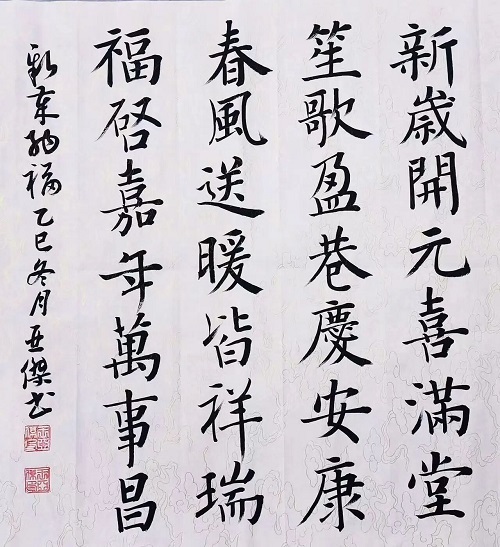 新歲開元喜滿堂
笙歌盈巷慶安康
春風送暖皆祥瑞
福啓嘉年萬事昌
新年納福乙巳冬月亚傑书